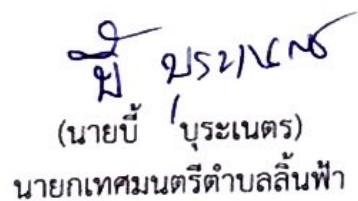 บี้ บุระเนตร
(นายบี้ บุระเนตร)
นายกเทศมนตรีตำบลลิ้นฟ้า